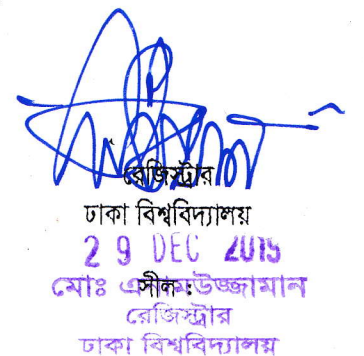 রেজিস্ট্রার
ঢাকা বিশ্ববিদ্যালয়
29 DEC 2015
সীল:
মোঃ এনামউজ্জামান
রেজিস্ট্রার
ঢাকা বিশ্ববিদ্যালয়